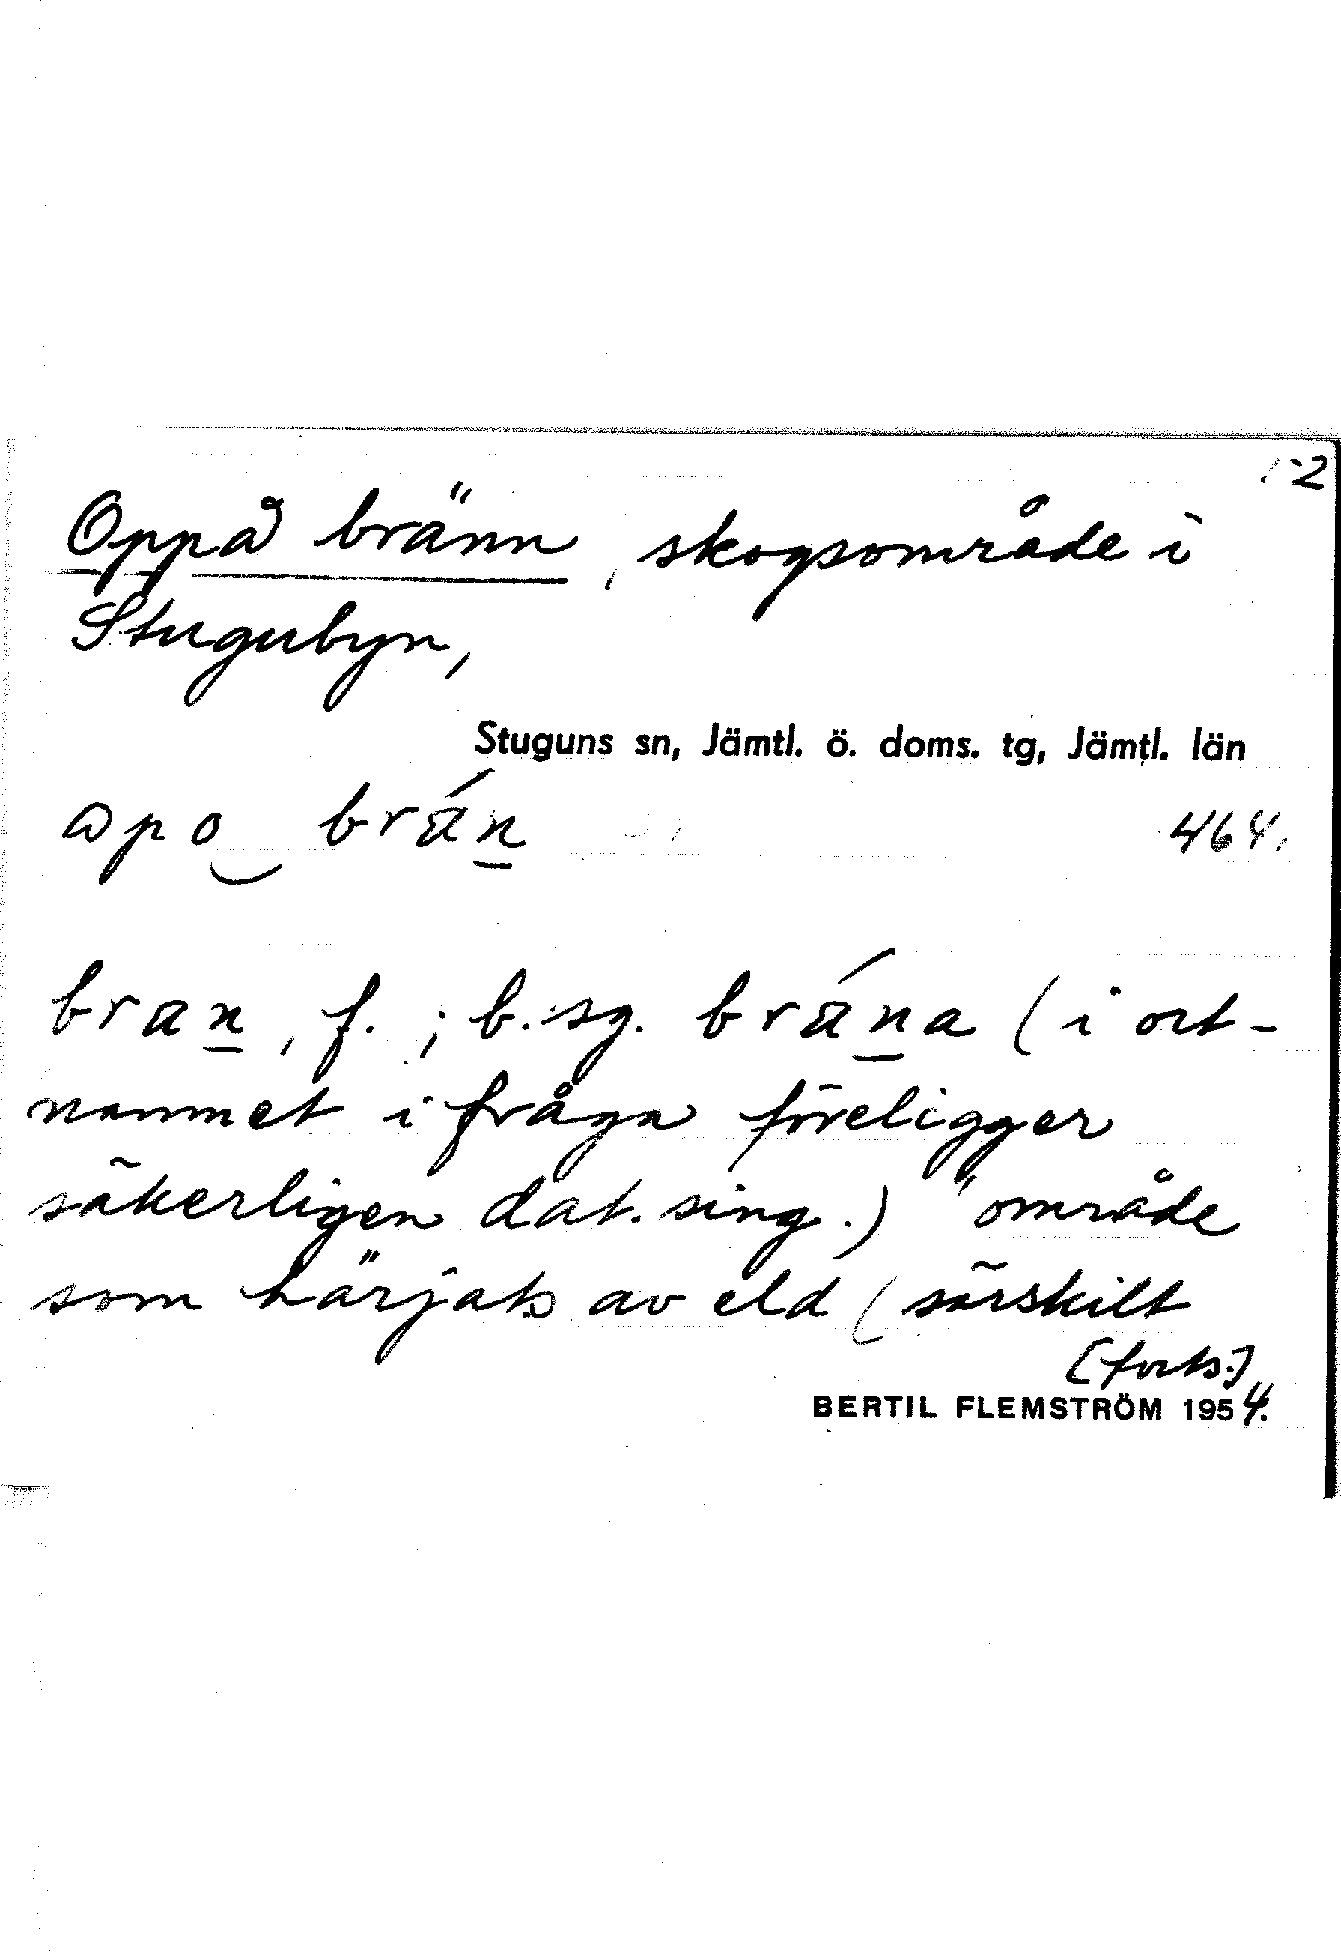 1-2
Oppå bränn, skogsområde i
Stugubyn,
Stuguns sn, Jämtl. ö. doms. tg, Jämtl. län
apo brán 464.
bran, f. ; b.sg. brána (i ort-
namnet i fråga föreligger
säkerligen dat. sing.) "område
som härjats av eld (särskilt
[forts.]
BERTIL FLEMSTRÖM 1954.